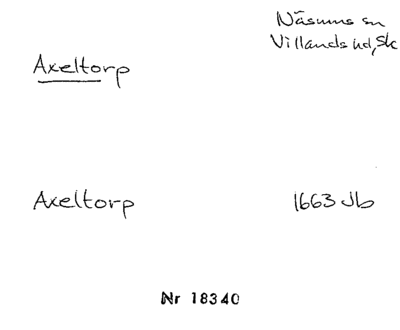 Näsums sn
Villands hd, Sk
Axeltorp
Axeltorp
1663 Jb
Nr 18340